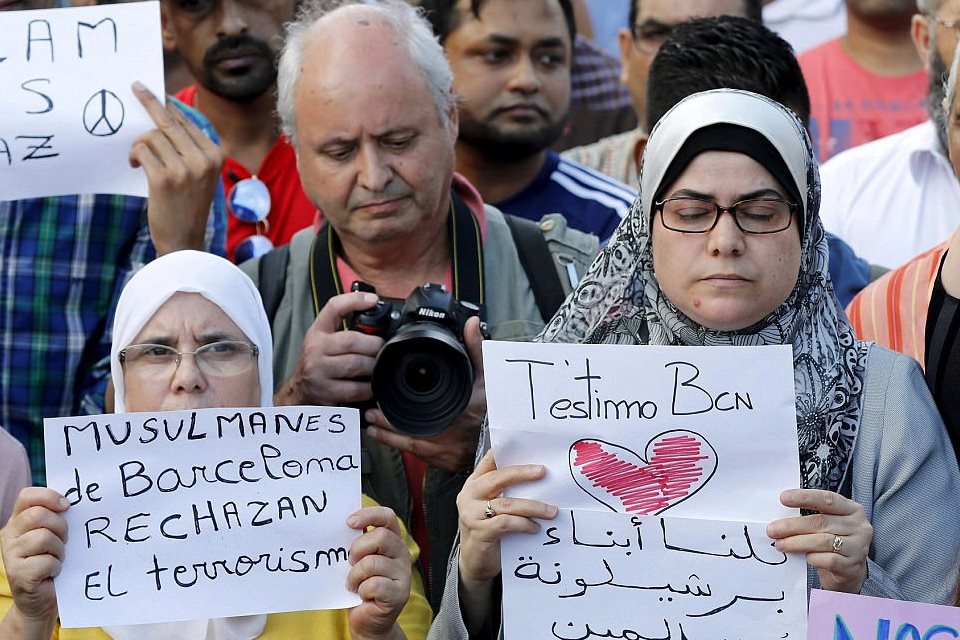 LAM
S
AZ
Nikon
MUSULMANES
de Barcelona
RECHAZAN
EL terrorismo
T'estimo BCN
كلنا أبناء
برشيلونة